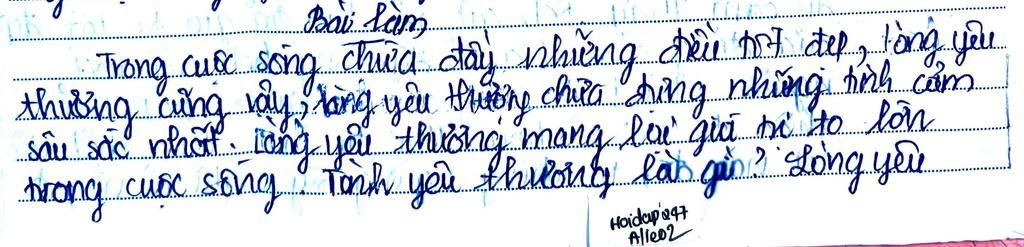 Bài làm
Trong cuộc sống chứa đầy những điều tốt đẹp, lòng yêu
thương cũng vậy, lòng yêu thương chứa đựng những tình cảm
sâu sắc nhất. Lòng yêu thương mang lại giá trị to lớn
trong cuộc sống. Tình yêu thương là gì? Lòng yêu
Hoidap247
Alle02